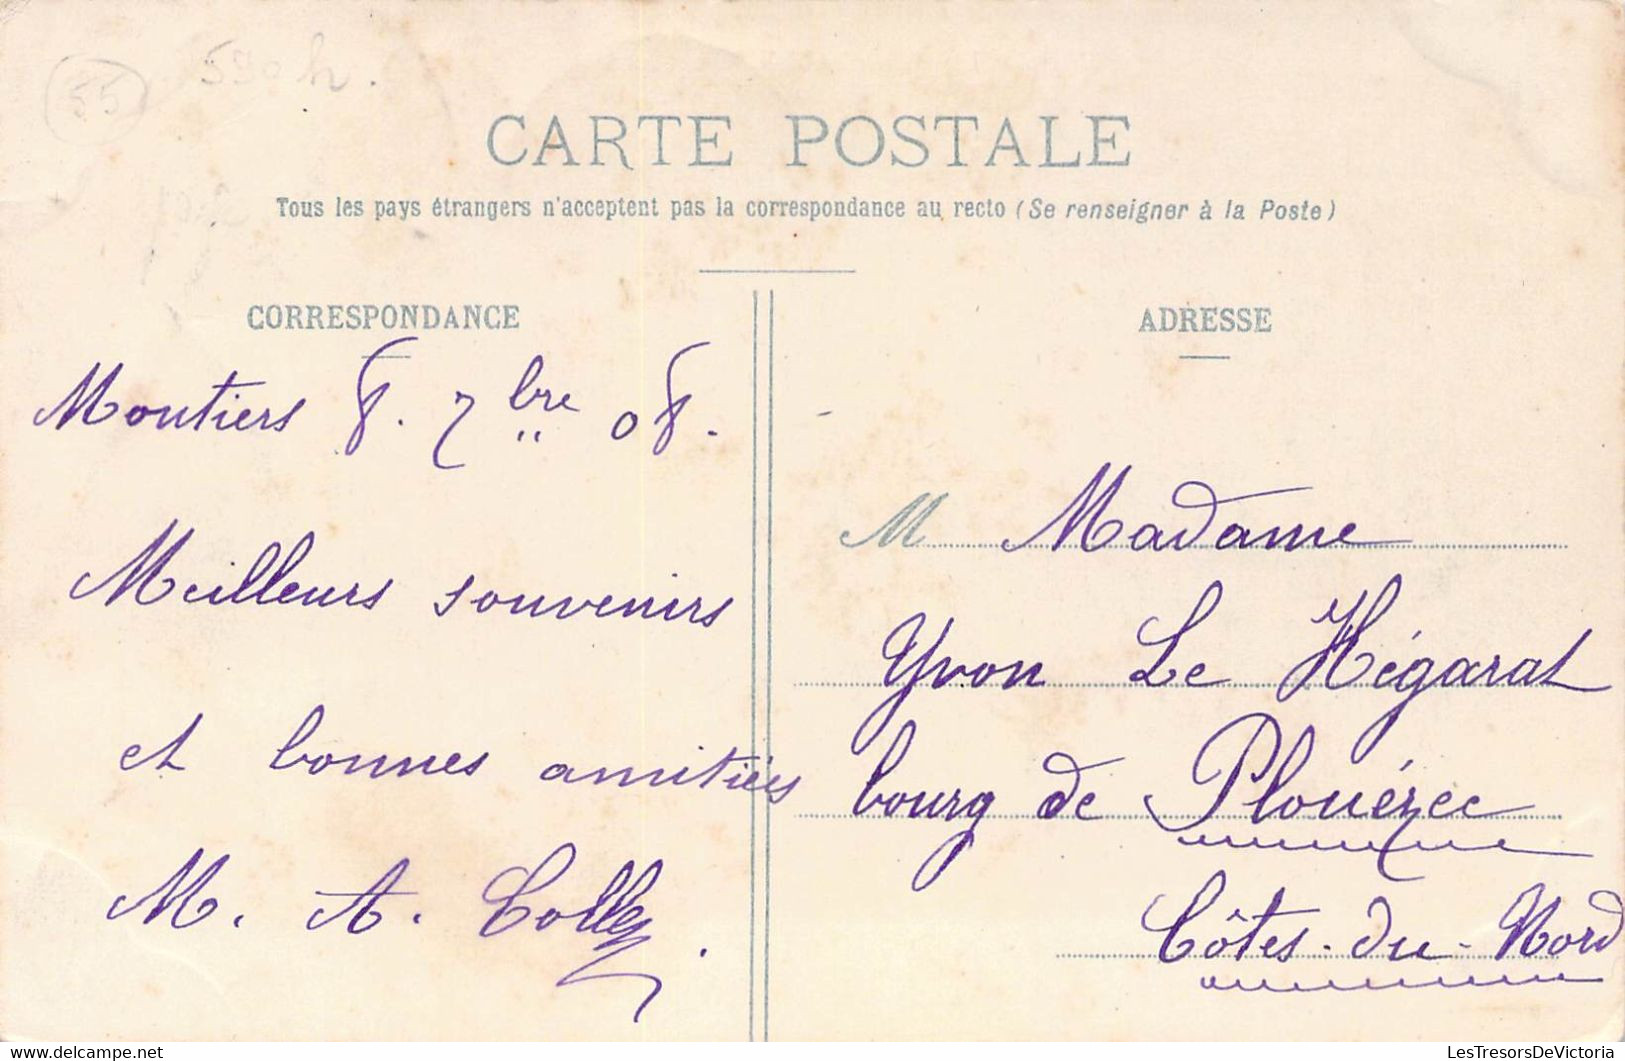 55
590 h.
CARTE POSTALE
Tous les pays étrangers n'acceptent pas la correspondance au recto (Se renseigner à la Poste)
CORRESPONDANCE
Moutiers 8. 7bre 08.
Meilleurs souvenirs
et bonnes amitiés
M. A. Collez.
ADRESSE
M Madame
Yvon Le Hégarat
bourg de Plouézec
Côtes-du-Nord
LesTresorsDeVictoria